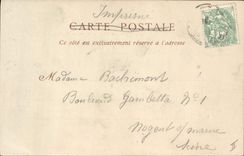 Imprimé
CARTE POSTALE
Ce côté est exclusivement réservé à l'adresse
Madame Bachemont
Boulevard Gambetta N°1
Nogent s/ marne
Seine